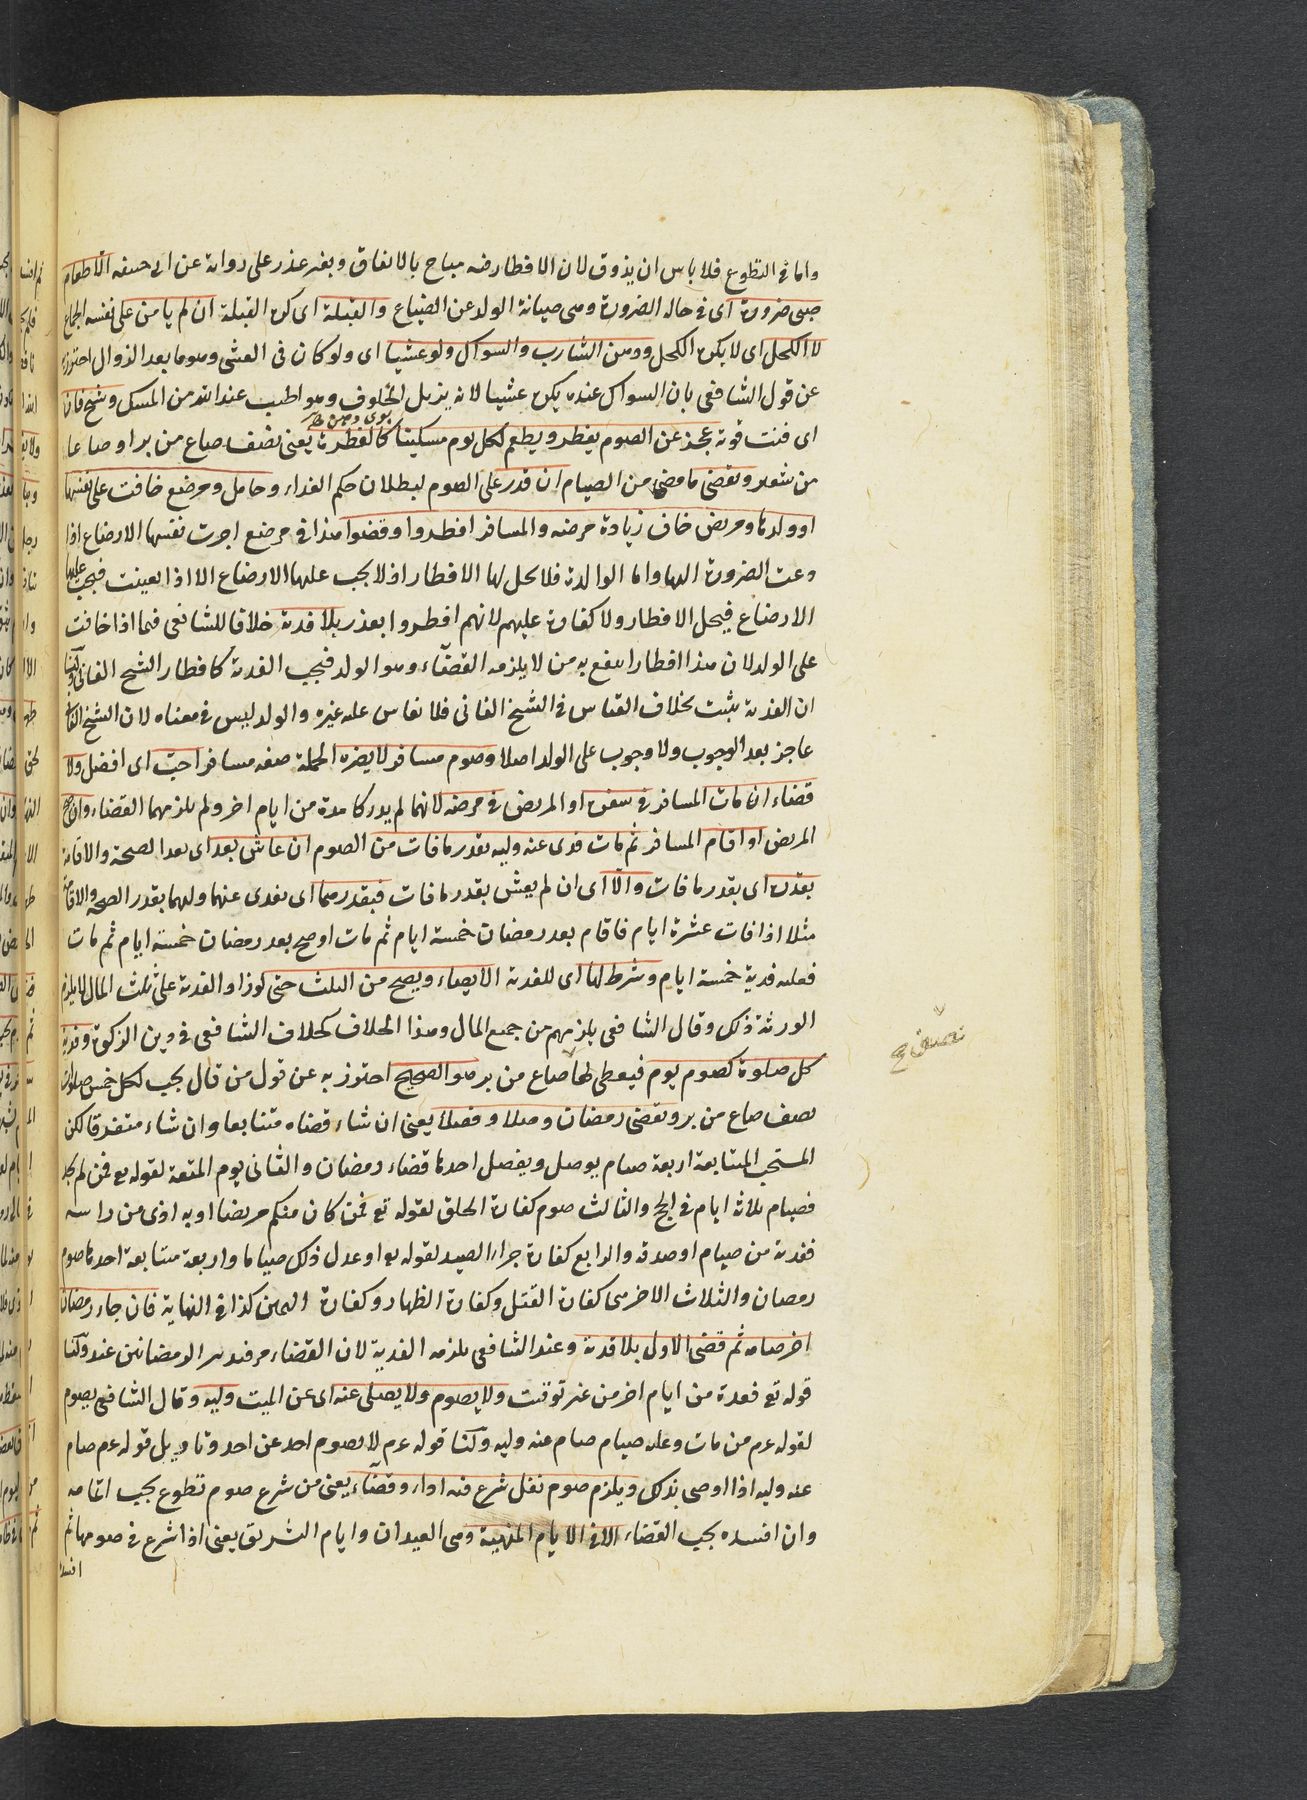 واما فى التطوع فلا باس ان يذوق لان الافطار فيه مباح بالاتفاق وبغير عذر على رواية عن ابى حنيفه الا طعام
صبى ضرورة اى فى حالة الضرورة وهى صيانة الولد عن الضياع والقبلة اى كره القبلة ان لم يامن على نفسه الجماع
لا الكحل اى لا يكره الكحل ودهن الشارب والسواك ولو عشيا اى ولو كان فى العشى وهو ما بعد الزوال احترز به
عن قول الشافعى بان السواك عنده يكره عشيا لانه يزيل الخلوف وهو اطيب عند الله من المسك وشيخ فان
اى فنت قوته عجز عن الصوم يفطر ويطعم لكل يوم مسكينا كالفطرة يعنى نصف صاع من بر او صاعا
من شعير ويقضى ما مضى من الصيام ان قدر على الصوم لبطلان حكم الفداء وحامل ومرضع خافت على نفسها
او ولدها ومريض خاف زيادة مرضه والمسافر افطروا وقضوا هذا فى مرضع اجرت نفسها الارضاع اذا
دعت الضرورة اليها واما الوالدة فلا يحل لها الافطار اذ لا يجب عليها الارضاع الا اذا تعينت فيجب عليها
الارضاع فيحل الافطار ولا كفارة عليهم لانهم افطروا بعذر بلا فدية خلافا للشافعى فيما اذا خافت
على الولد لان هذا افطار انتفع به من لا يلزمه القضاء وهو الولد فيجب الفدية كافطار الشيخ الفانى ولنا
ان الفدية ثبت بخلاف القياس فى الشيخ الفانى فلا يقاس عليه غيره والولد ليس فى معناه لان الشيخ الفانى
عاجز بعد الوجوب ولا وجوب على الولد اصلا وصوم مسافر لا يضره الجملة صفة مسافر احب اى افضل ولا
قضاء ان مات المسافر فى سفره او المريض فى مرضه لانهما لم يدركا عدة من ايام اخر ولم يلزمهما القضاء وان صح
المريض او اقام المسافر ثم مات فدى عنه وليه بقدر ما فات من الصوم ان عاش بعد اى بعد الصحة والاقامة
بقدره اى بقدر ما فات والا اى ان لم يعش بقدر ما فات فبقدرهما اى يفدى عنهما وليهما بقدر الصحة والاقامة
مثلا اذا فات عشرة ايام فاقام بعد رمضان خمسة ايام ثم مات او صح بعد رمضان خمسة ايام ثم مات
فعليه فدية خمسة ايام وشرط لها اى للفدية الايصاء ويصح من الثلث حتى لو زاد الفدية على ثلث المال لا يلزم
الورثة ذلك وقال الشافعى يلزمهم من جميع المال وهذا الخلاف كخلاف الشافعى فى دين الزكوة وفدية
كل صلوة كصوم يوم فيعطى لها صاع من بر هو الصحيح احترز به عن قول من قال يجب لكل خمس صلوات
نصف صح
نصف صاع من بر ويقضى رمضان وصلا وفصلا يعنى ان شاء قضاه متتابعا وان شاء متفرقا لكن
المستحب المتابعة اربعة صيام يوصل ويفصل احدها قضاء رمضان والثانى يوم المتعة لقوله تع فمن لم يجد
فصيام ثلاثة ايام فى الحج والثالث صوم كفارة الحلق لقوله تع فمن كان منكم مريضا او به اذى من راسه
ففدية من صيام او صدقة والرابع كفارة جزاء الصيد لقوله تع او عدل ذلك صياما واربعة متتابعة احدها صوم
رمضان والثلاث الاخر هى كفارة القتل وكفارة الظهار وكفارة اليمين كذا فى النهاية فان جاء رمضان
اخر صامه ثم قضى الاول بلا فدية وعند الشافعى يلزمه الفدية لان القضاء الرمضانين عنده ولنا
قوله تع فعدة من ايام اخر من غير توقيت ولا يصوم ولا يصلى عنه اى عن الميت وليه وقال الشافعى يصوم
لقوله عم من مات وعليه صيام صام عنه وليه ولنا قوله عم لا يصوم احد عن احد وتاويل قوله عم صام
عنه وليه اذا اوصى بذلك ويلزم صوم نفل شرع فيه اداء وقضاء يعنى من شرع صوم تطوع يجب اتمامه
وان افسده يجب القضاء الا فى الايام المنهية وهى العيدان وايام التشريق يعنى اذا شرع فى صومها ثم
افسد